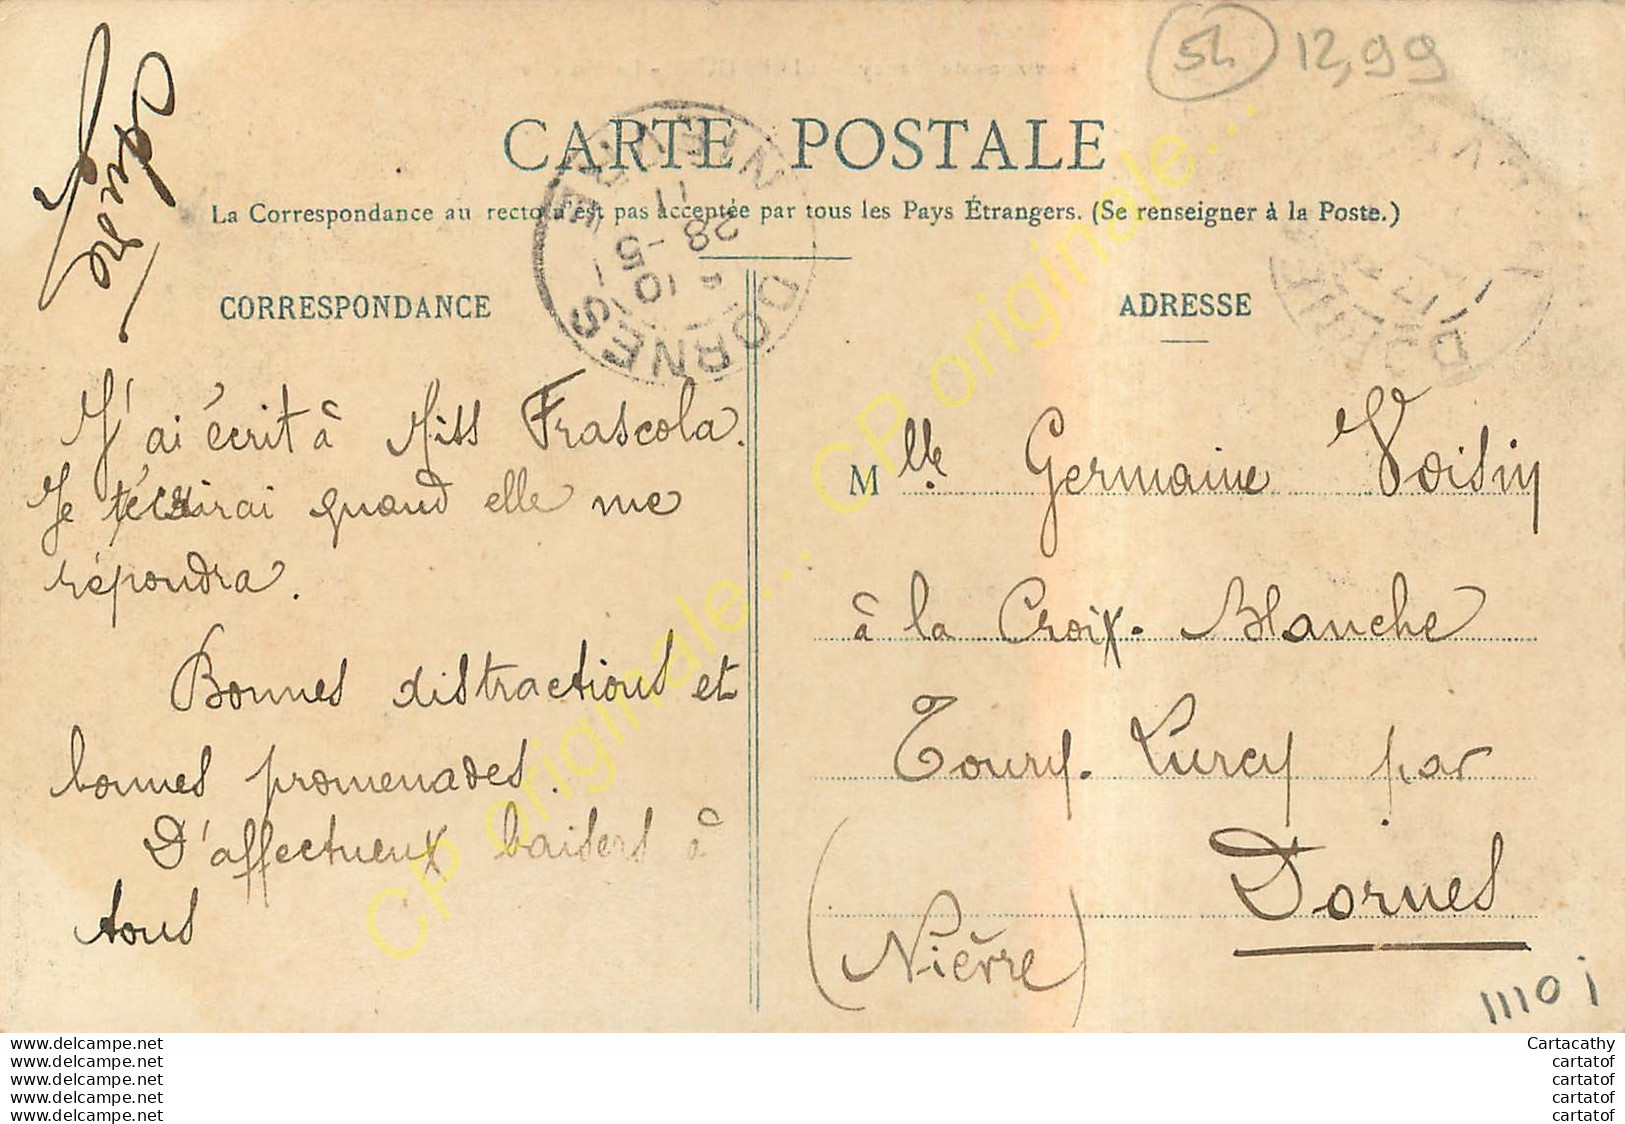 54 12,99
CARTE POSTALE
La Correspondance au recto n'est pas acceptée par tous les Pays Étrangers. (Se renseigner à la Poste.)
NIEVRE
11
28 -5
10
DORNES
CORRESPONDANCE
J'ai écrit à Miss Frascola.
Je t'écrirai quand elle me
répondra.
Bonnes distractions et
bonnes promenades.
D'affectueux baisers à
tous
ADRESSE
Mlle Germaine Voisin
à la Croix-Blanche
Toury-Lurcy par
Dornes
(Nièvre)
11110 j
CP originale... CP originale...
www.delcampe.net
www.delcampe.net
www.delcampe.net
www.delcampe.net
www.delcampe.net
Cartacathy
cartatof
cartatof
cartatof
cartatof